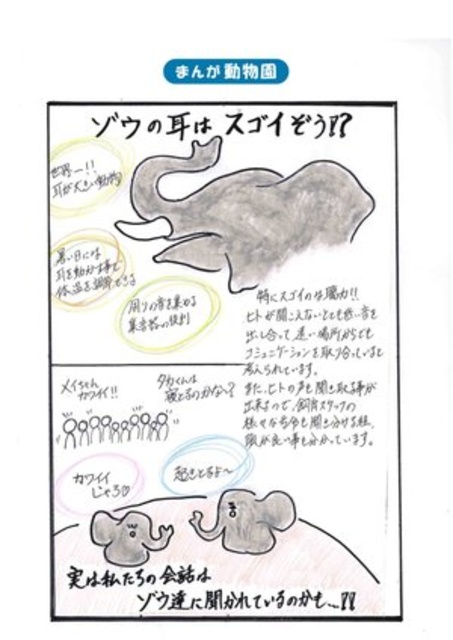 まんが動物園
ゾウの耳は スゴイぞう!?
世界一!!
耳が大きい動物
暑い日には
耳を動かす事で
体温を調節できる
周りの音を集める
集音器の役割
特にスゴイのは聴力!!
ヒトが聞こえないとても低い音を
出し合って、遠い場所からでも
コミュニケーションを取り合っていると
考えられています。
また、ヒトの声も聞き取る事が
出来るので、飼育スタッフの
様々な号令も聞き分ける程、
頭が良い事も分かっています。
メイちゃん
カワイイ!!
タカくんは
寝とるのかな〜?
カワイイ
じゃろ♡
起きとるよ〜
実は私たちの会話は
ゾウ達に聞かれているのかも…!?